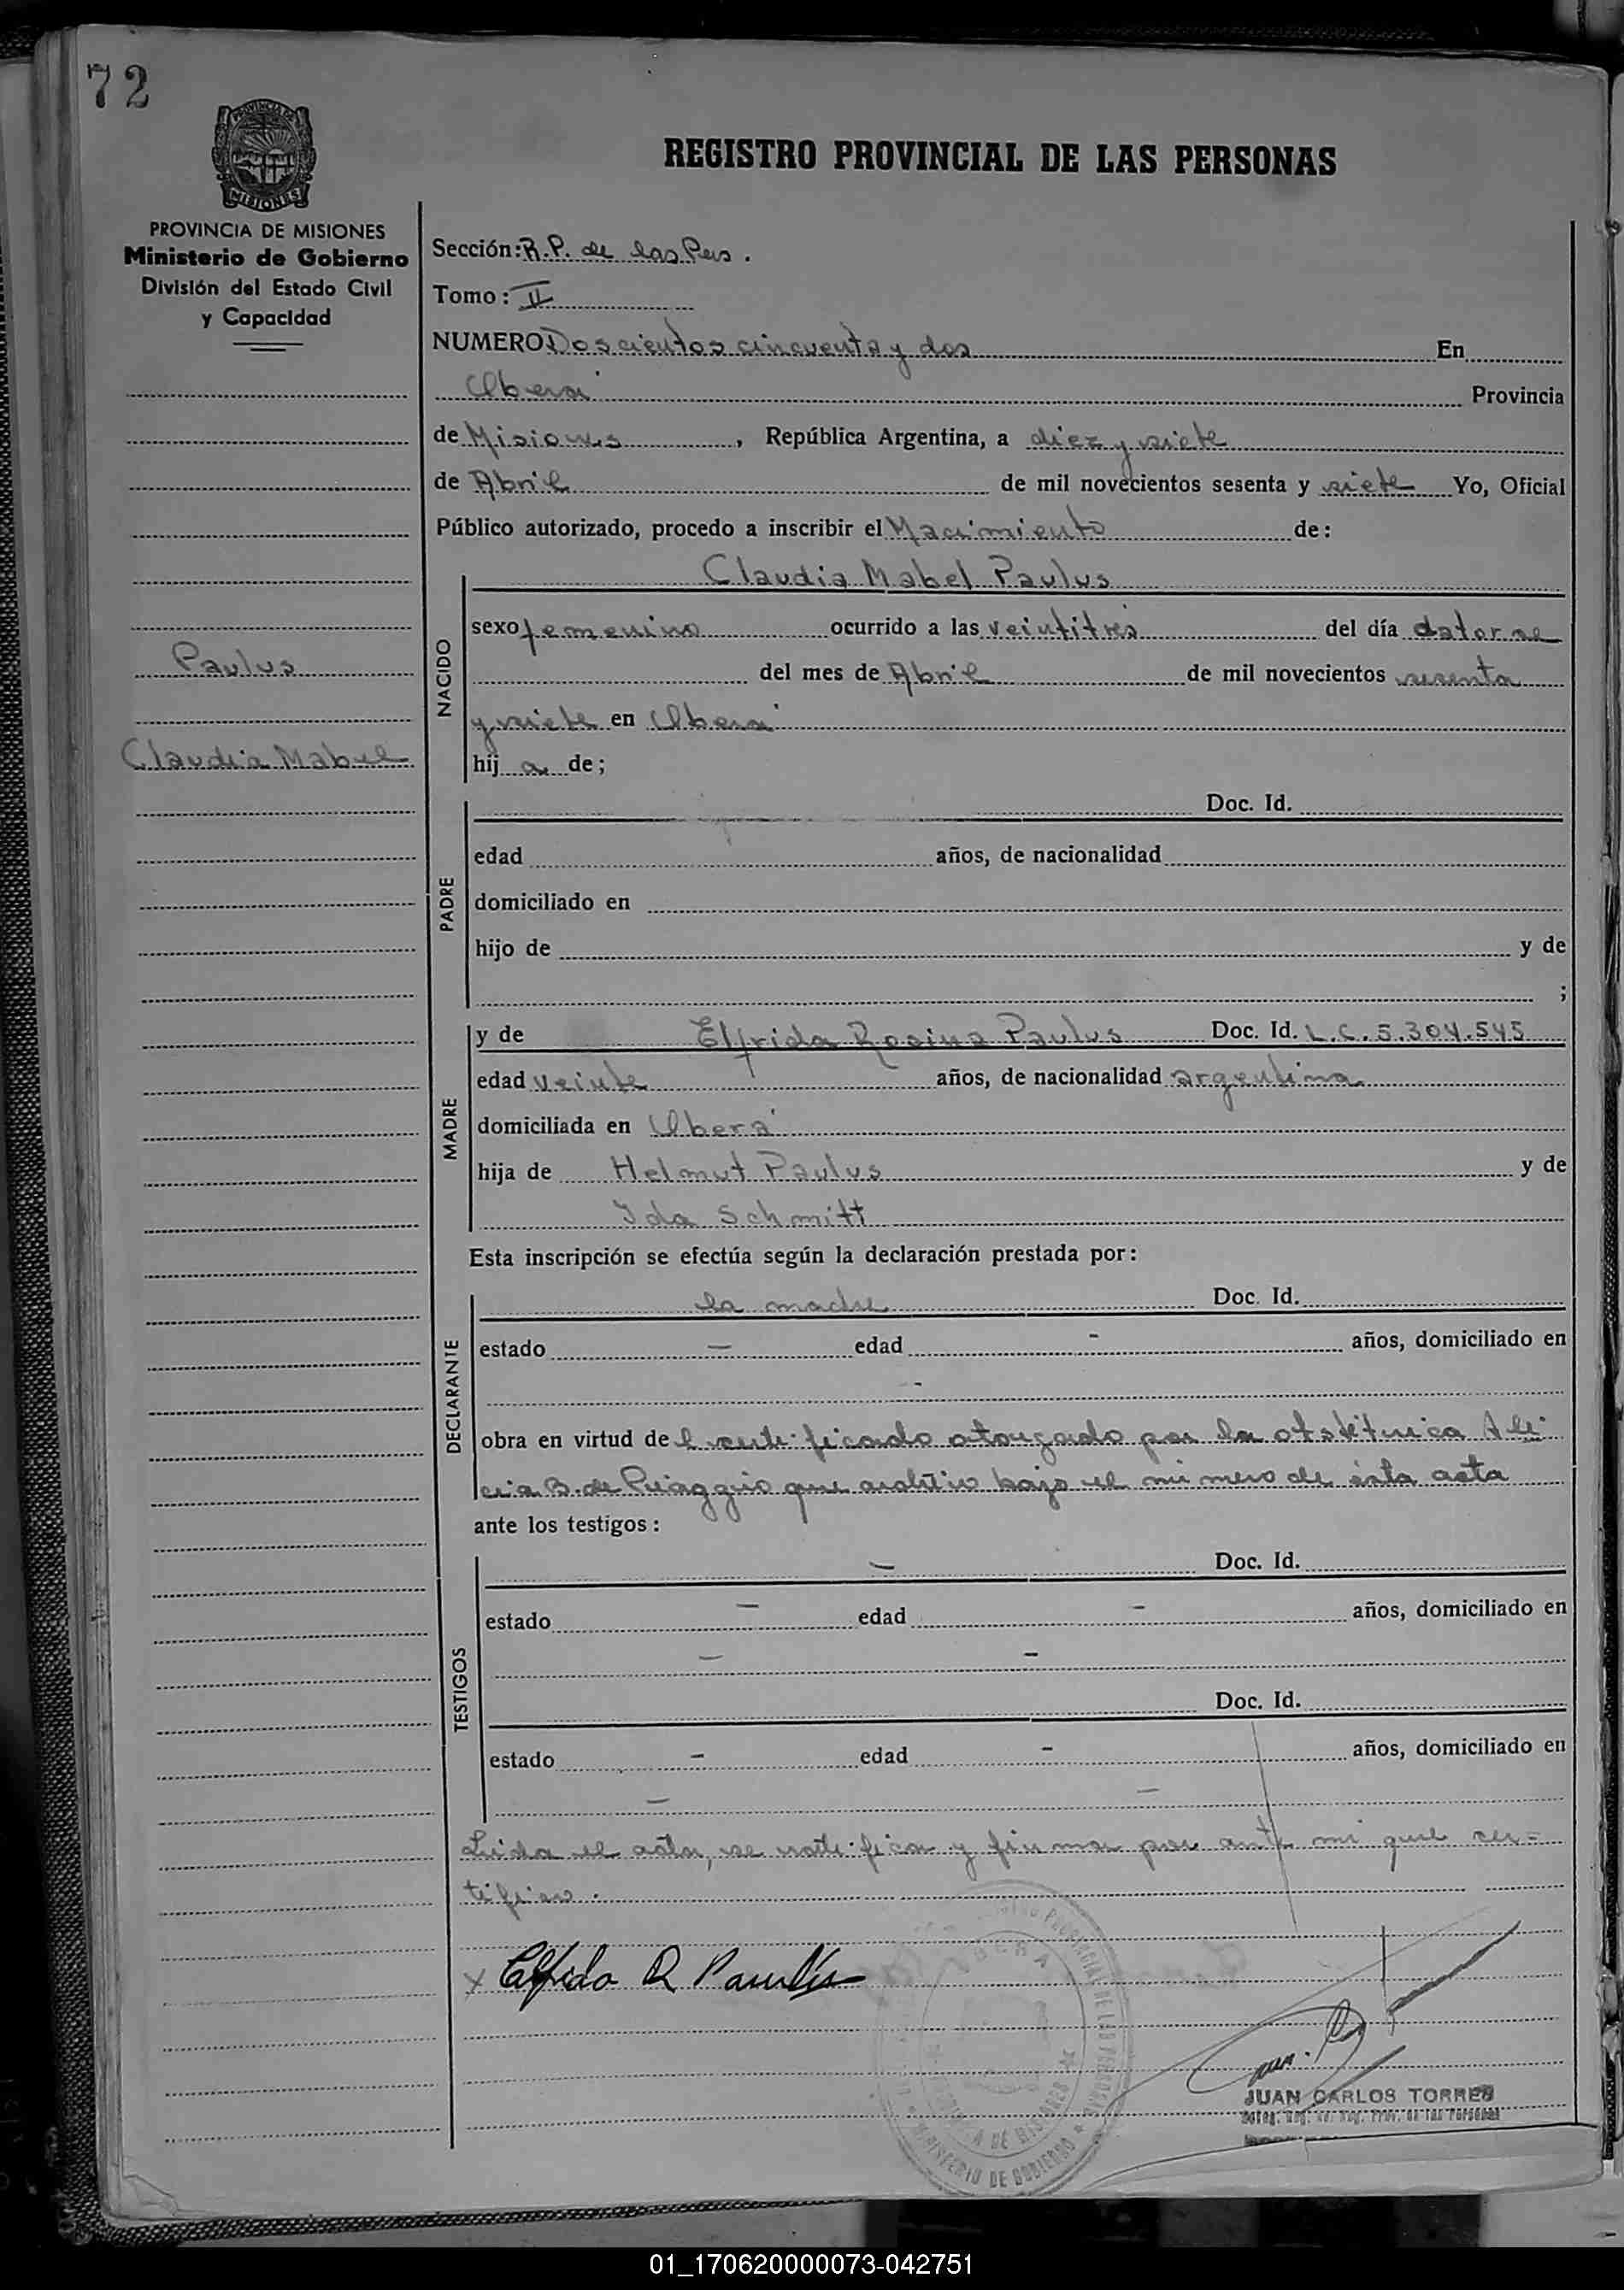 72
PROVINCIA DE
MISIONES
REGISTRO PROVINCIAL DE LAS PERSONAS
PROVINCIA DE MISIONES
Ministerio de Gobierno
División del Estado Civil
y Capacidad
Sección: R.P. de las Pers.
Tomo: II
NUMERO Doscientos cincuenta y dos En
Oberá Provincia
de Misiones, República Argentina, a diez y siete
de Abril de mil novecientos sesenta y siete Yo, Oficial
Público autorizado, procedo a inscribir el Nacimiento de:
Claudia Mabel Paulus
NACIDO
sexo femenino ocurrido a las veintitrés del día catorce
del mes de Abril de mil novecientos sesenta
y siete en Oberá
hij a de;
Paulus
Claudia Mabel
PADRE
Doc. Id.
edad años, de nacionalidad
domiciliado en
hijo de y de
;
MADRE
y de Elfrida Rosina Paulus Doc. Id. L.C. 5.304.545
edad veinte años, de nacionalidad argentina
domiciliada en Oberá
hija de Helmut Paulus y de
Ida Schmitt
Esta inscripción se efectúa según la declaración prestada por:
DECLARANTE
la madre Doc. Id.
estado — edad - años, domiciliado en
-
obra en virtud de l certificado otorgado por la obstétrica Ali-
cia B. de Piaggio que archivo bajo el número de ésta acta
ante los testigos:
TESTIGOS
— Doc. Id.
estado — edad - años, domiciliado en
— -
Doc. Id.
estado - edad - años, domiciliado en
— —
Leida el acta, se ratifica y firma por ante mi que cer=
tifico.
x Elfrida R Paulus
OBERA
MINISTERIO DE GOBIERNO
JUAN CARLOS TORRES
01_170620000073-042751